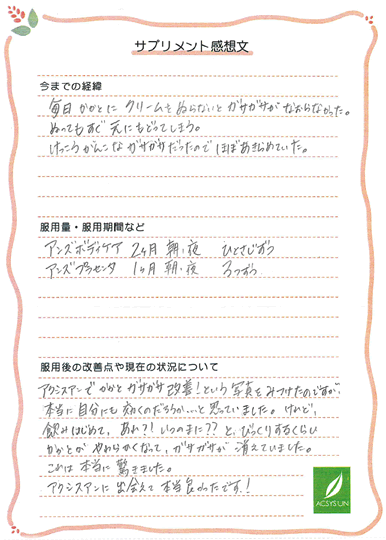 サプリメント感想文
今までの経緯
毎日 かかとに クリームを ぬらないと ガサガサが なおらなかった。
ぬってもすぐ 元にもどってしまう。
けっこうがんこな ガサガサだったので ほぼあきらめていた。
服用量・服用期間など
アンズボディケア 2ヶ月 朝、夜 ひとさじずつ
アンズプラセンタ 1ヶ月 朝、夜 3つずつ
服用後の改善点や現在の状況について
アクシスアンで かかと ガサガサ 改善!という 写真を みつけたのですが、
本当に 自分にも 効くのだろうか…と 思っていました。けれど、
飲みはじめて、あれ?!いつのまに??と、びっくりするくらい
かかとが やわらかくなって、ガサガサが 消えていました。
これは 本当に 驚きました。
アクシスアンに 出会えて 本当 良かったです!
ACSYS UN